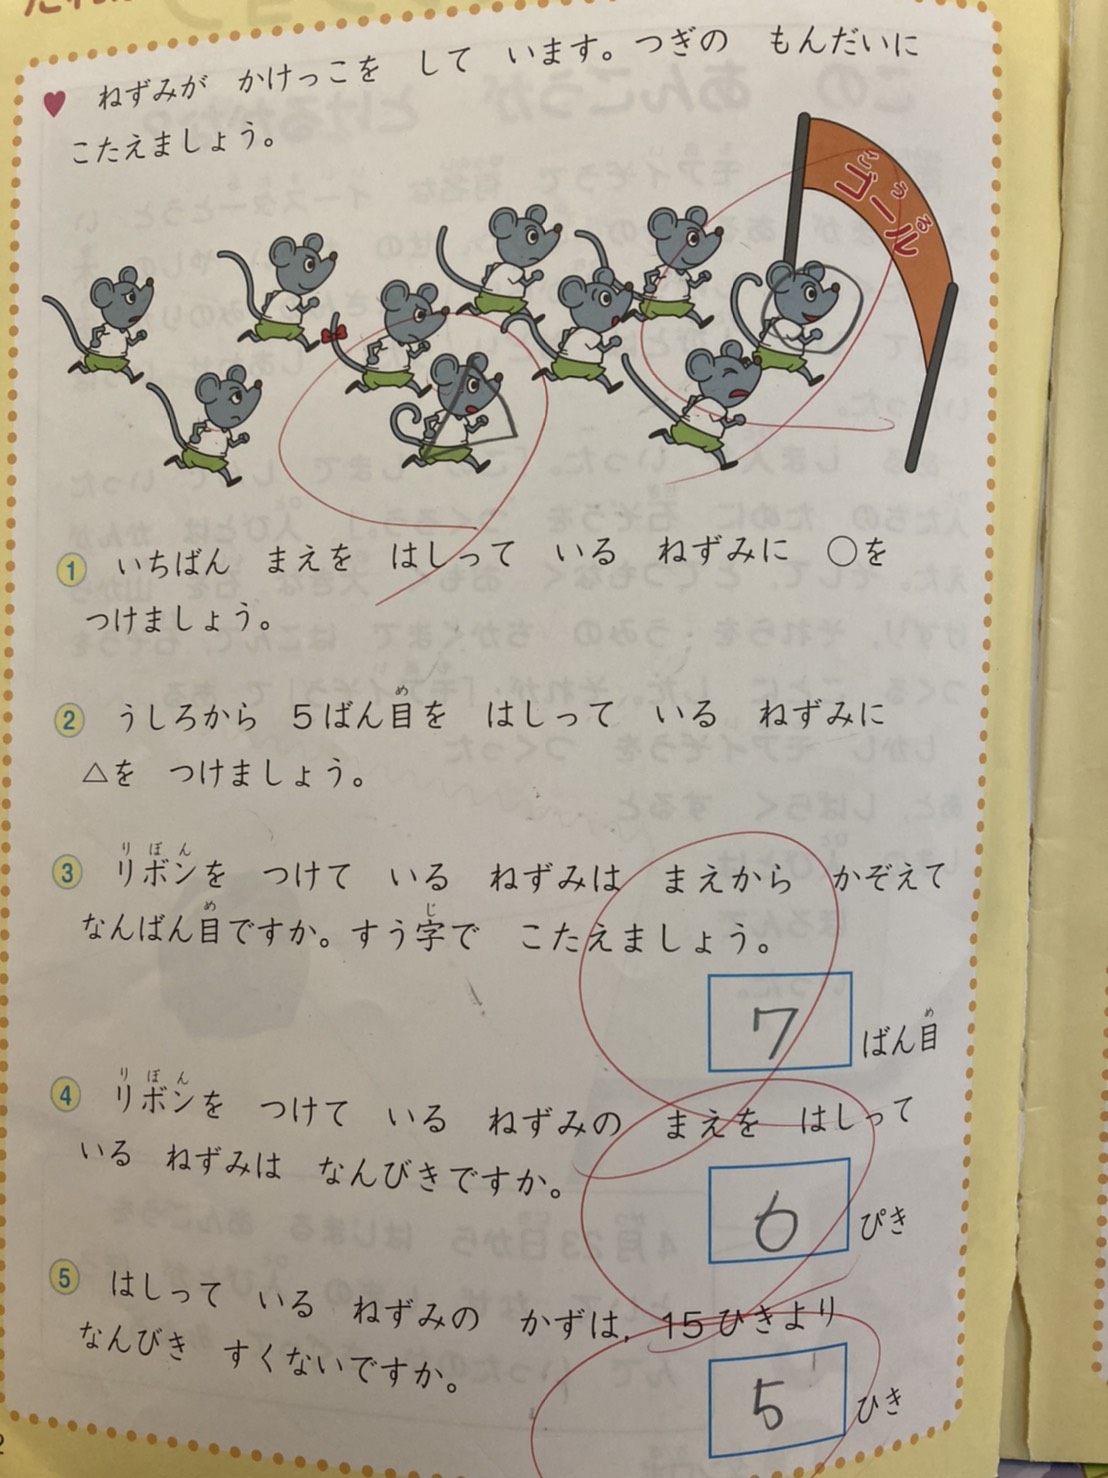 ねずみが かけっこを して います。つぎの もんだいに
こたえましょう。
ごうる
ゴール
1 いちばん まえを はしって いる ねずみに ○を
つけましょう。
め
2 うしろから 5ばん目を はしって いる ねずみに
△を つけましょう。
りぼん
3 リボンを つけて いる ねずみは まえから かぞえて
め じ
なんばん目ですか。すう字で こたえましょう。
め
7 ばん目
りぼん
4 リボンを つけて いる ねずみの まえを はしって
いる ねずみは なんびきですか。
6 ぴき
5 はしって いる ねずみの かずは, 15ひきより
なんびき すくないですか。
5 ひき